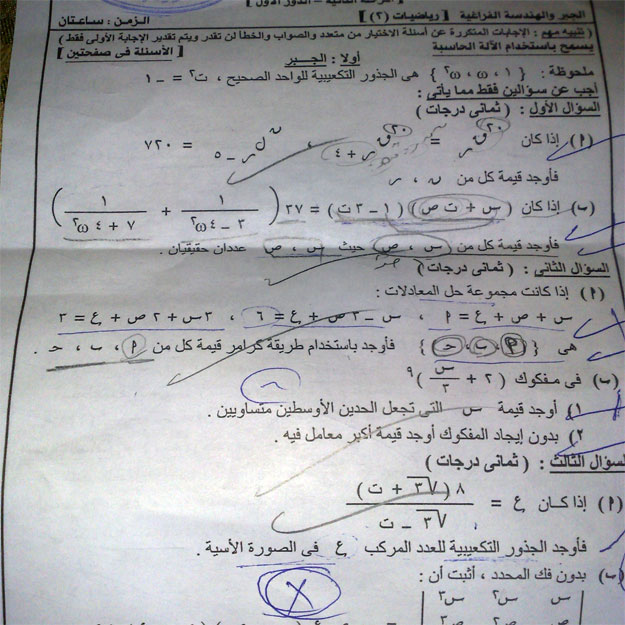 المرحلة الثانية - الدور الأول ]
الجبر والهندسة الفراغية [ رياضيات (٢) ] الزمن : ساعتان
( تنبيه مهم : الإجابات المتكررة عن أسئلة الاختيار من متعدد والصواب والخطأ لن تقدر ويتم تقدير الإجابة الأولى فقط )
يسمح باستخدام الآلة الحاسبة [ الأسئلة فى صفحتين ]
أولا : الجبر
ملحوظة : { ١ ، ω ، ω٢ } هى الجذور التكعيبية للواحد الصحيح ، ت٢ = – ١
أجب عن سؤالين فقط مما يأتى :
السؤال الأول : ( ثمانى درجات )
(٩) إذا كان ٢٠ق ر = ٢٠ق ر + ٤ ، ن ل ر – ٥ = ٧٢٠
فأوجد قيمة كل من ن ، ر
(ب) إذا كان ( س + ت ص ) ( ١ – ٣ ت ) = ٣٧ ( ١ / ( ٣ – ٤ ω٢ ) + ١ / ( ٧ + ٤ ω٢ ) )
فأوجد قيمة كل من ( س ، ص ) حيث س ، ص عددان حقيقيان .
السؤال الثانى : ( ثمانى درجات )
(٩) إذا كانت مجموعة حل المعادلات :
س + ص + ع = ٩ ، س – ٣ ص + ع = ٦ ، ٣ س + ٢ ص + ع = ٣
هى { ( ٩ ، ب ، حـ ) } فأوجد باستخدام طريقة كرامر قيمة كل من ٩ ، ب ، حـ .
(ب) فى مفكوك ( ٢ + س / ٣ )٩
١) أوجد قيمة س التى تجعل الحدين الأوسطين متساويين .
٢) بدون إيجاد المفكوك أوجد قيمة أكبر معامل فيه .
السؤال الثالث : ( ثمانى درجات )
(٩) إذا كان ع = ٨ ( √٣ + ت ) / ( √٣ – ت )
فأوجد الجذور التكعيبية للعدد المركب ع فى الصورة الأسية .
(ب) بدون فك المحدد ، أثبت أن :
س س٢ س٣
ص ص٢ ص٣